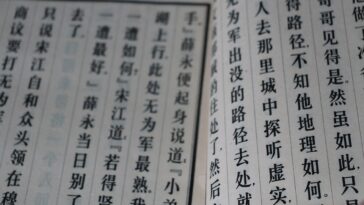 哥哥见得是。然虽如此,只
得路径,不知他地理如何,
人去那里城中探听虚实,
无为军出没的路径去处,就
的住处了,然后
手。”薛永便起身说道:“小弟
湖上行,此处无为军最熟,我
一遭如何?”宋江道:“若得贤
一遭最好。”薛永当日别了
去了。
只说宋江自和众头领在穆
商议要打无为